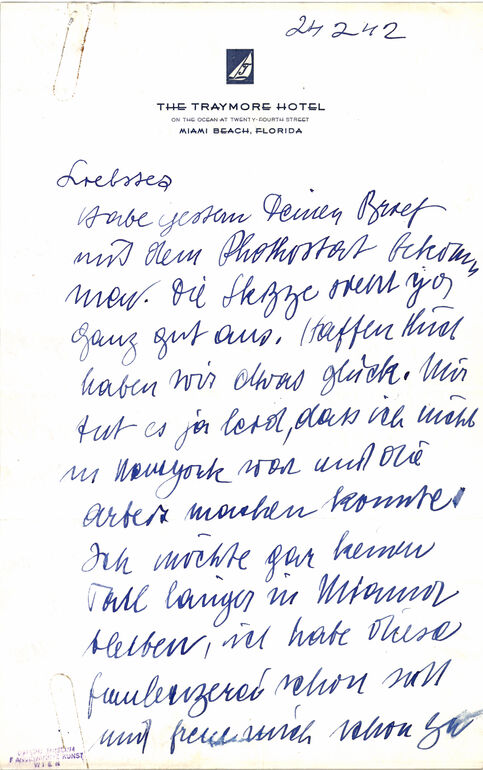 24 2 42
THE TRAYMORE HOTEL
ON THE OCEAN AT TWENTY-FOURTH STREET
MIAMI BEACH, FLORIDA
Liebster
Habe gestern Deinen Brief
mit dem Photostat bekom
men. Die Skizze sieht ja
ganz gut aus. Hoffentlich
haben wir etwas glück. Mir
tut es ja leid, dass ich nicht
in Newyork war und die
arbeit machen konnte.
Ich möchte gar keinen
Fall länger in Miami
bleiben, ich habe diese
faulenzerei schon satt
und freue mich schon
FÜR ANGEWANDTE KUNST
WIEN